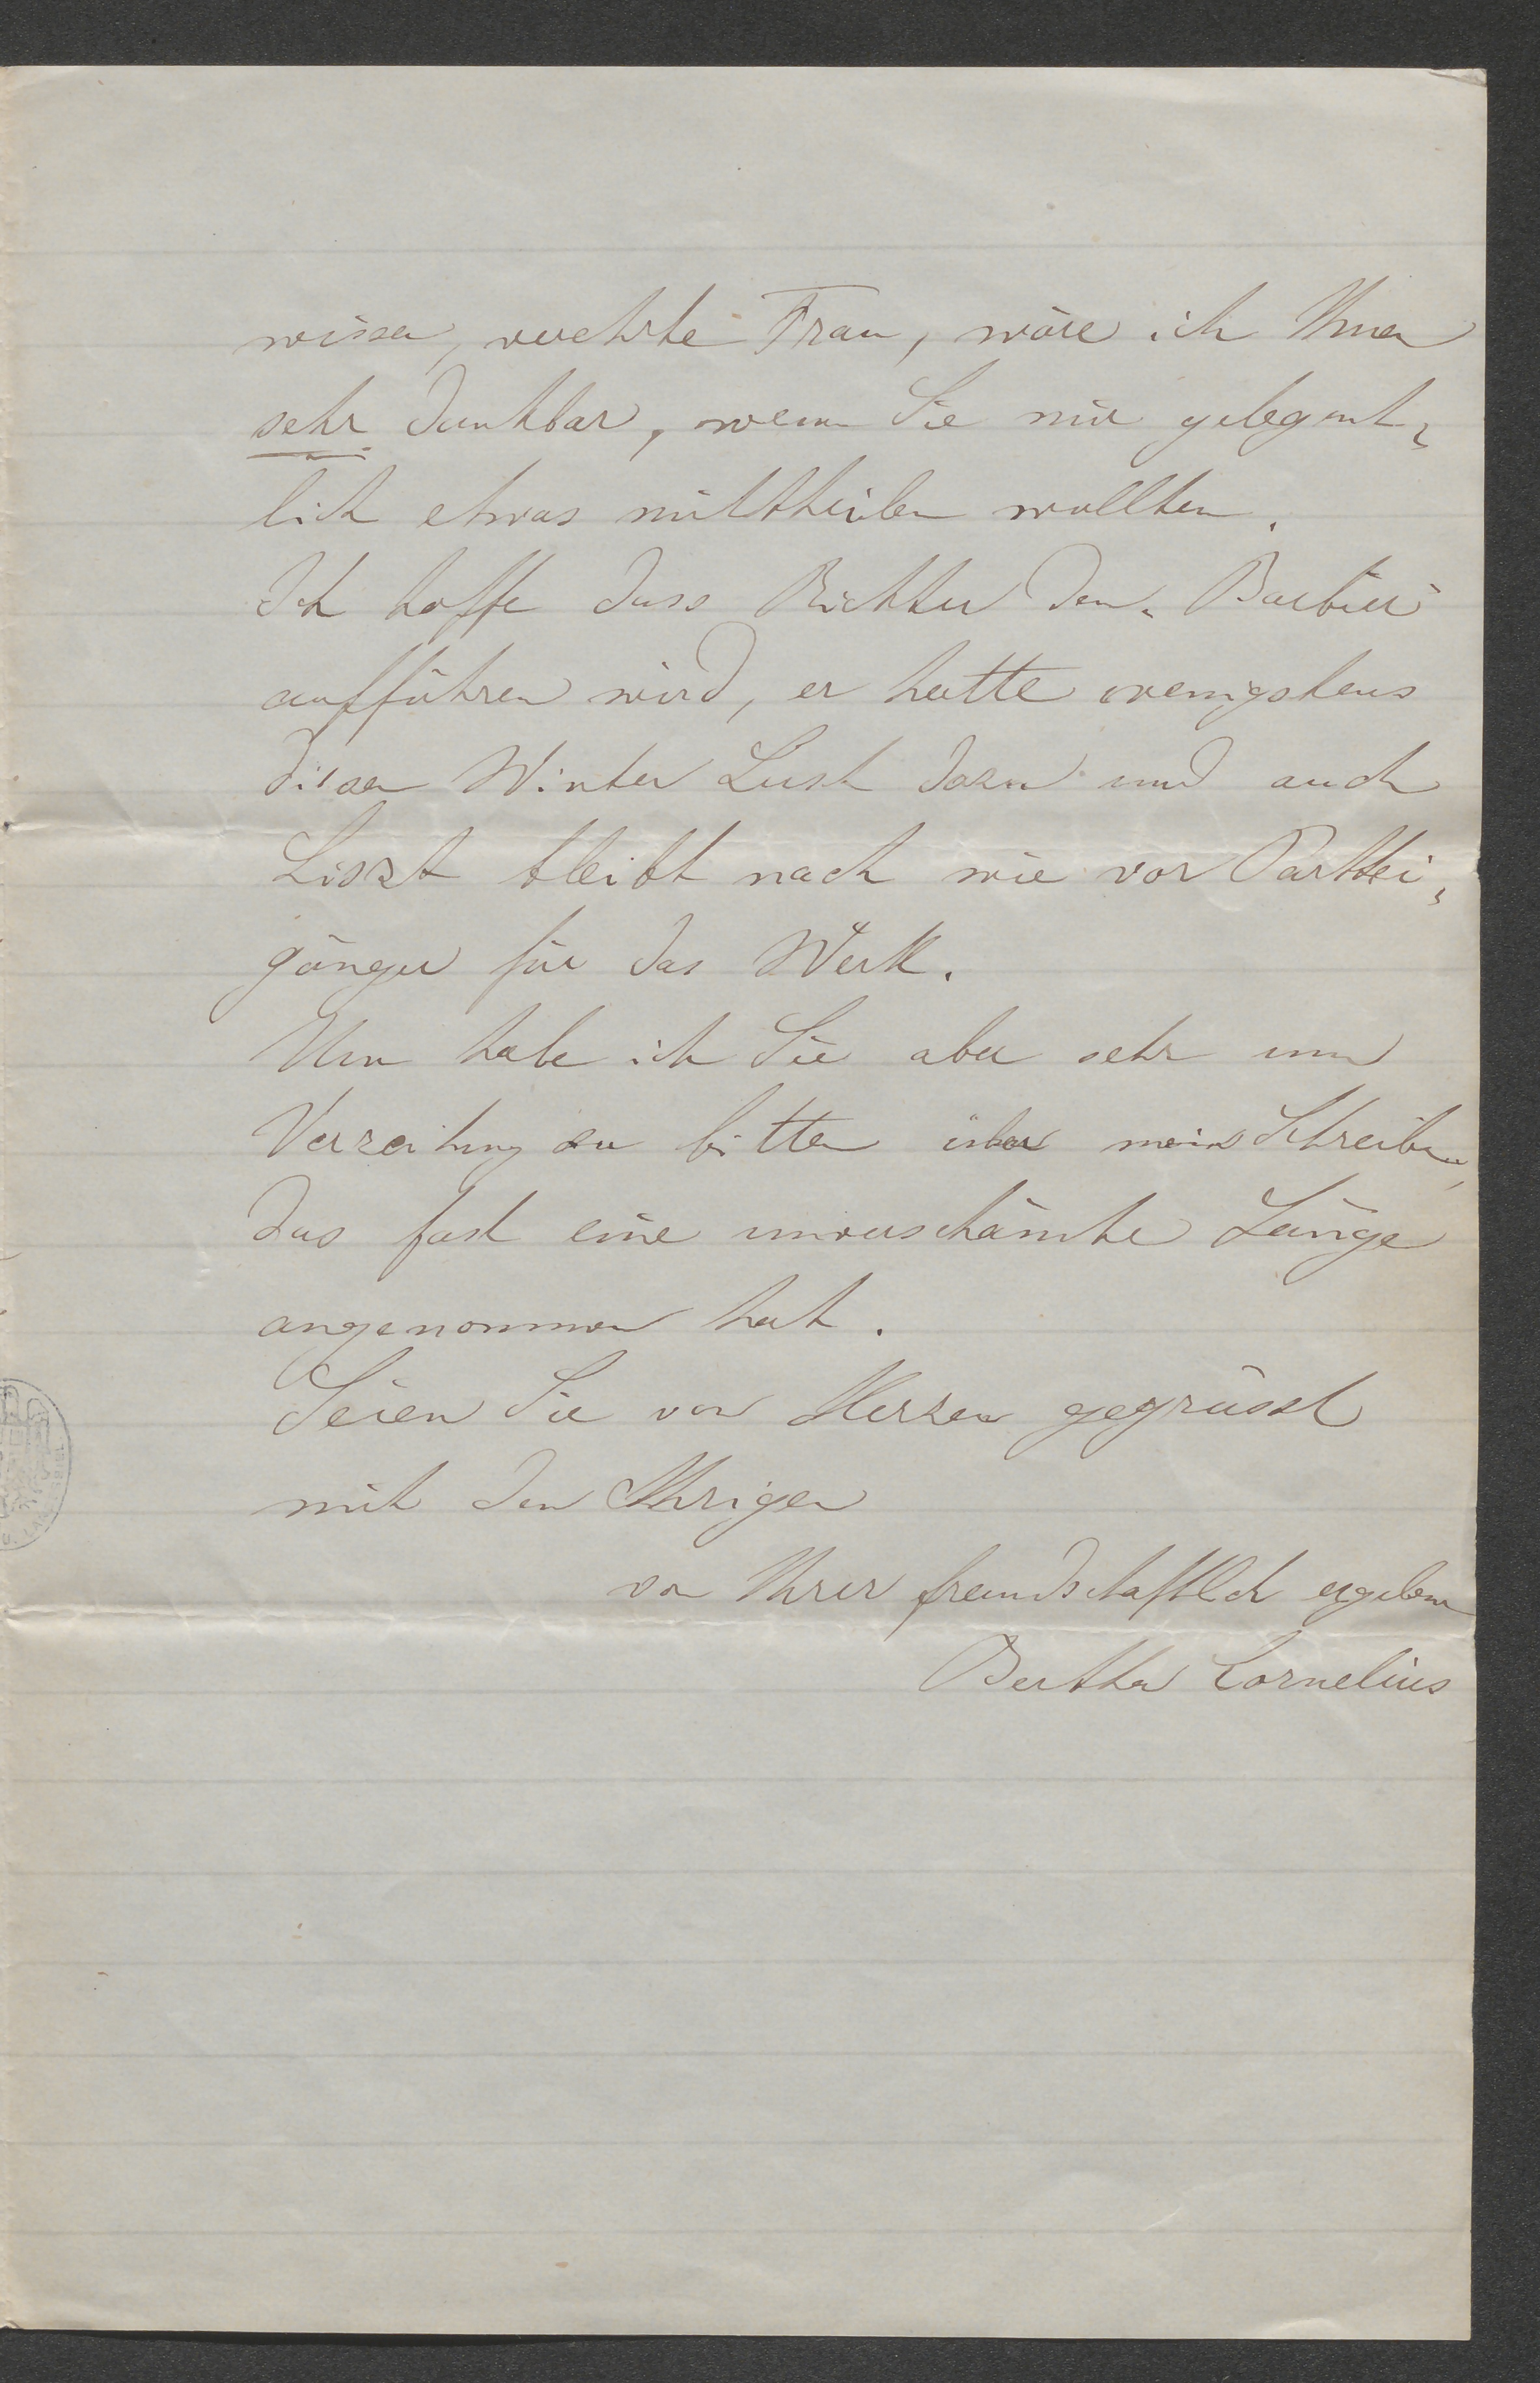 wissen, verehrte Frau, wäre ich Ihnen
sehr dankbar, wenn Sie mir gelegent-
lich etwas mittheilen wollten.
Ich hoffe dass Richter den Barbier
aufführen wird, er hatte wenigstens
diesen Winter Lust dazu und auch
Liszt bleibt nach wie vor Parthei-
gänger für das Werk.
Nun habe ich Sie aber sehr um
Verzeihung zu bitten über mein Schreiben,
das fast eine unverschämte Länge
angenommen hat.
Seien Sie von Herzen gegrüsst
mit den Ihrigen
von Ihrer freundschaftlich ergebenen
Bertha Cornelius